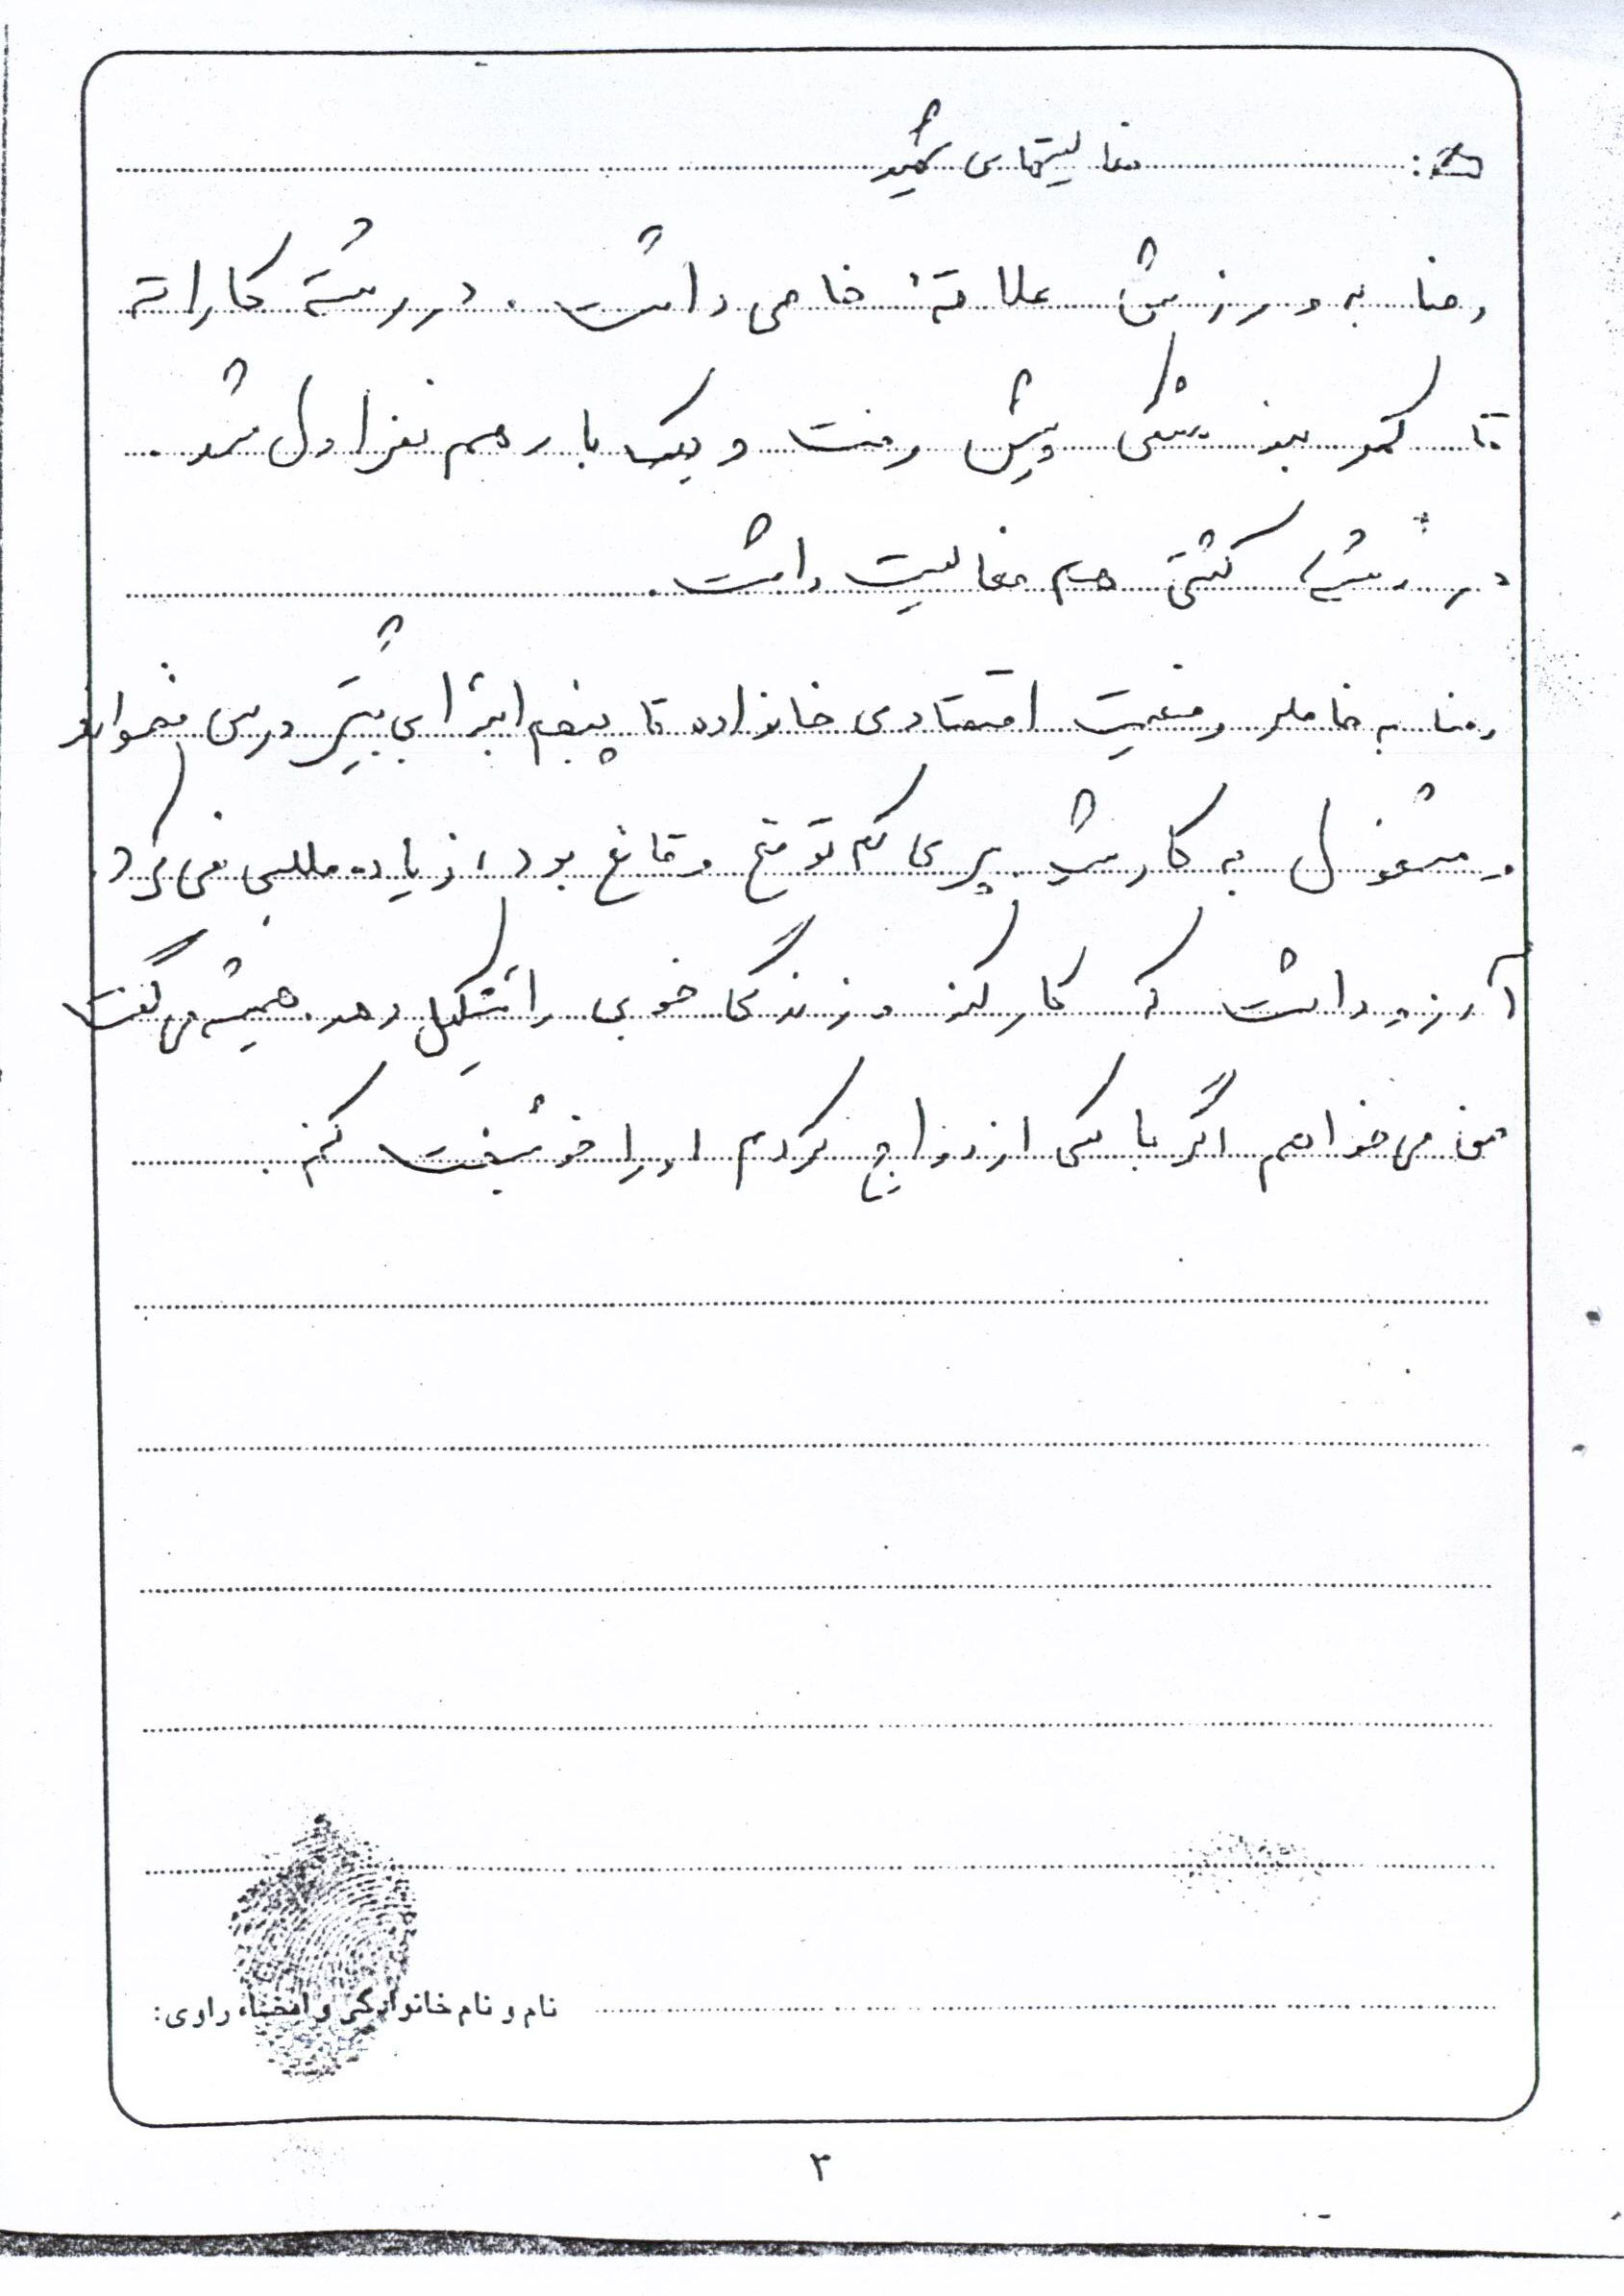 فعالیتهای شهید
رضا به ورزش علاقهٔ خاصی داشت. در رشته کاراته
تا کمربند مشکی پیش رفت و یک بار هم نفر اول شد.
در رشته کشتی هم فعالیت داشت.
رضا به خاطر وضعیت اقتصادی خانواده تا پنجم ابتدایی بیشتر درس نخواند
و مشغول به کار شد. پسری کم توقع و قانع بود، زیاده طلبی نمی کرد.
آرزو داشت که کار کند و زندگی خوبی را تشکیل دهد. همیشه می گفت
من می خواهم اگر با کسی ازدواج کردم او را خوشبخت کنم.
نام و نام خانوادگی و امضاء راوی:
۳